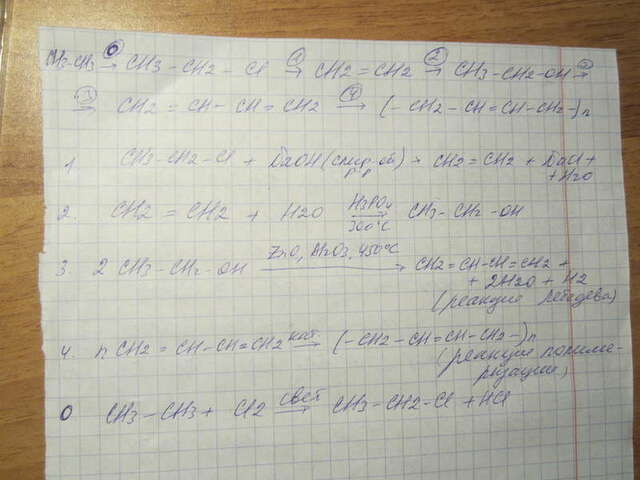 CH3-CH3 →⓪ CH3-CH2-Cl →① CH2=CH2 →② CH3-CH2-OH →③
→③ CH2=CH-CH=CH2 →④ (-CH2-CH=CH-CH2-)n
1 CH3-CH2-Cl + NaOH (спир. р-р) → CH2=CH2 + NaCl +
+ H2O
2. CH2=CH2 + H2O H3PO4 → 300°C CH3-CH2-OH
3. 2 CH3-CH2-OH ZnO, Al2O3, 450°C → CH2=CH-CH=CH2 +
+ 2H2O + H2
(реакция Лебедева)
4. n CH2=CH-CH=CH2 кат → (-CH2-CH=CH-CH2-)n
(реакция полиме-
ризации)
0 CH3-CH3 + Cl2 свет → CH3-CH2-Cl + HCl